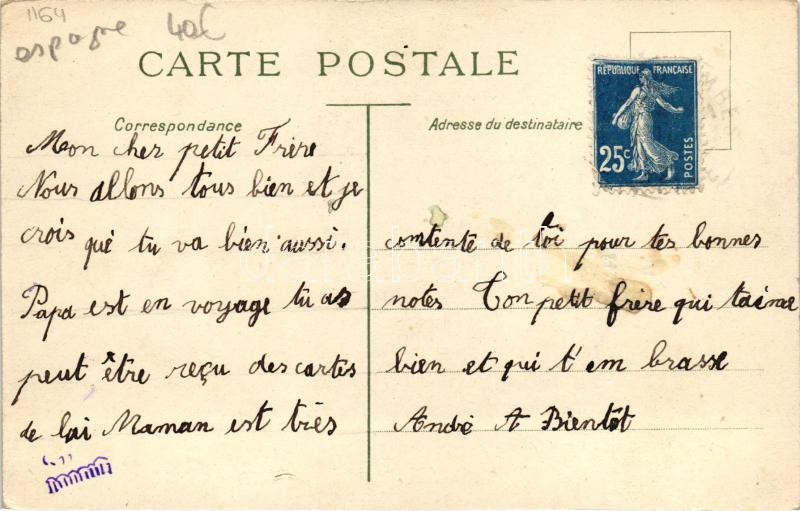 1164
espagne 40c
CARTE POSTALE
Correspondance
Adresse du destinataire
RÉPUBLIQUE FRANÇAISE
25c
POSTES
Mon cher petit Frère
Nous allons tous bien et je
crois que tu va bien aussi.
Papa est en voyage tu as
peut être reçu des cartes
de lui Maman est très
contente de toi pour tes bonnes
notes Ton petit frère qui taime
bien et qui t'em brasse
André A Bientôt